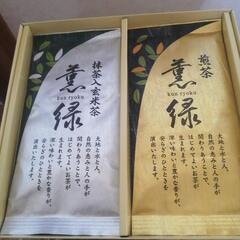 抹茶入玄米茶
薫緑
kun ryoku
大地と水と人、
自然の恵みと人の手が
関わりあうことで、
はじめてよいお茶が
生まれます。
深い味わいと豊かな香りが、
安らぎのひとときを
演出いたします。
煎茶
薫緑
kun ryoku
大地と水と人、
自然の恵みと人の手が
関わりあうことで、
はじめてよいお茶が
生まれます。
深い味わいと豊かな香りが、
安らぎのひとときを
演出いたします。